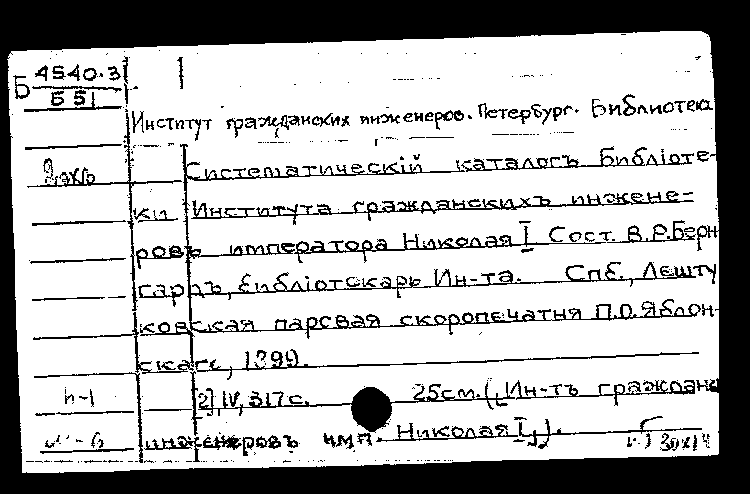 Б 4540.3
Б 51
Институт гражданских инженеров. Петербург. Библиотека
2 экз
Систематическій каталогъ Библіоте-
ки Института гражданскихъ инжене-
ровъ императора Николая I Сост. В.Р.Берн
гардъ, библіотекарь Ин-та. Спб., Лешту
ковская паровая скоропечатня П.О.Яблон-
скаго, 1899.
h-1 [2],IV,317с. 25см.([Ин-тъ граждан
инженеровъ имп. Николая I]).